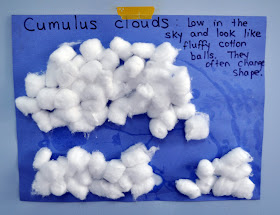 Cumulus clouds: Low in the
sky and look like
fluffy cotton
balls. They
often change
shape.